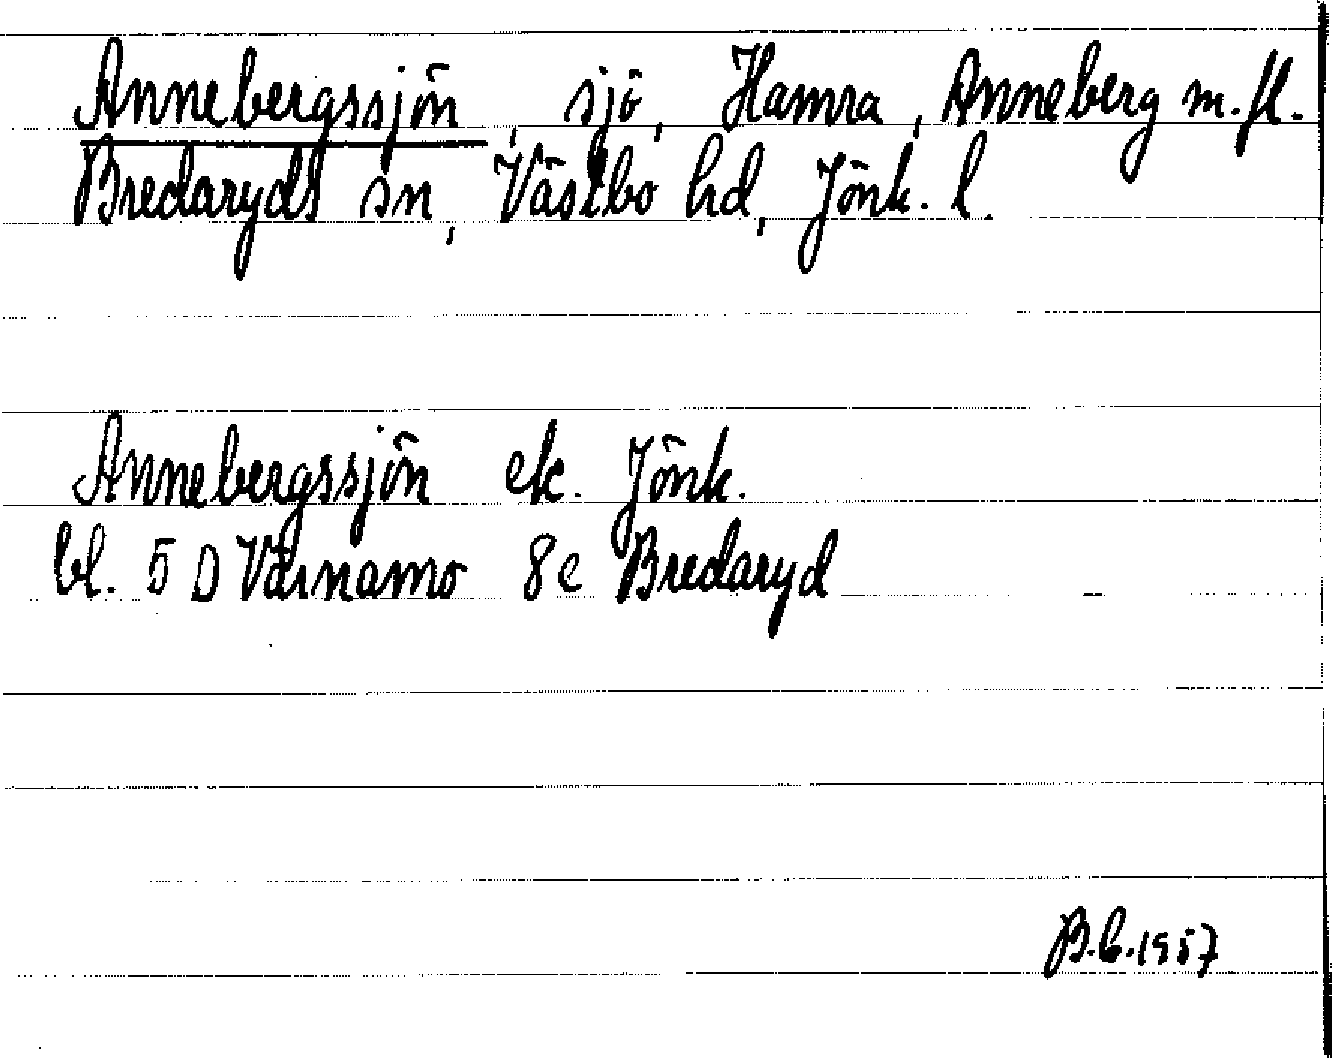 Annebergssjön, sjö, Hamra, Anneberg m.fl.
Bredaryds sn, Västbo hd, Jönk. l.
Annebergssjön ek. Jönk.
bl. 5 D Värnamo 8e Bredaryd
B.C.1957